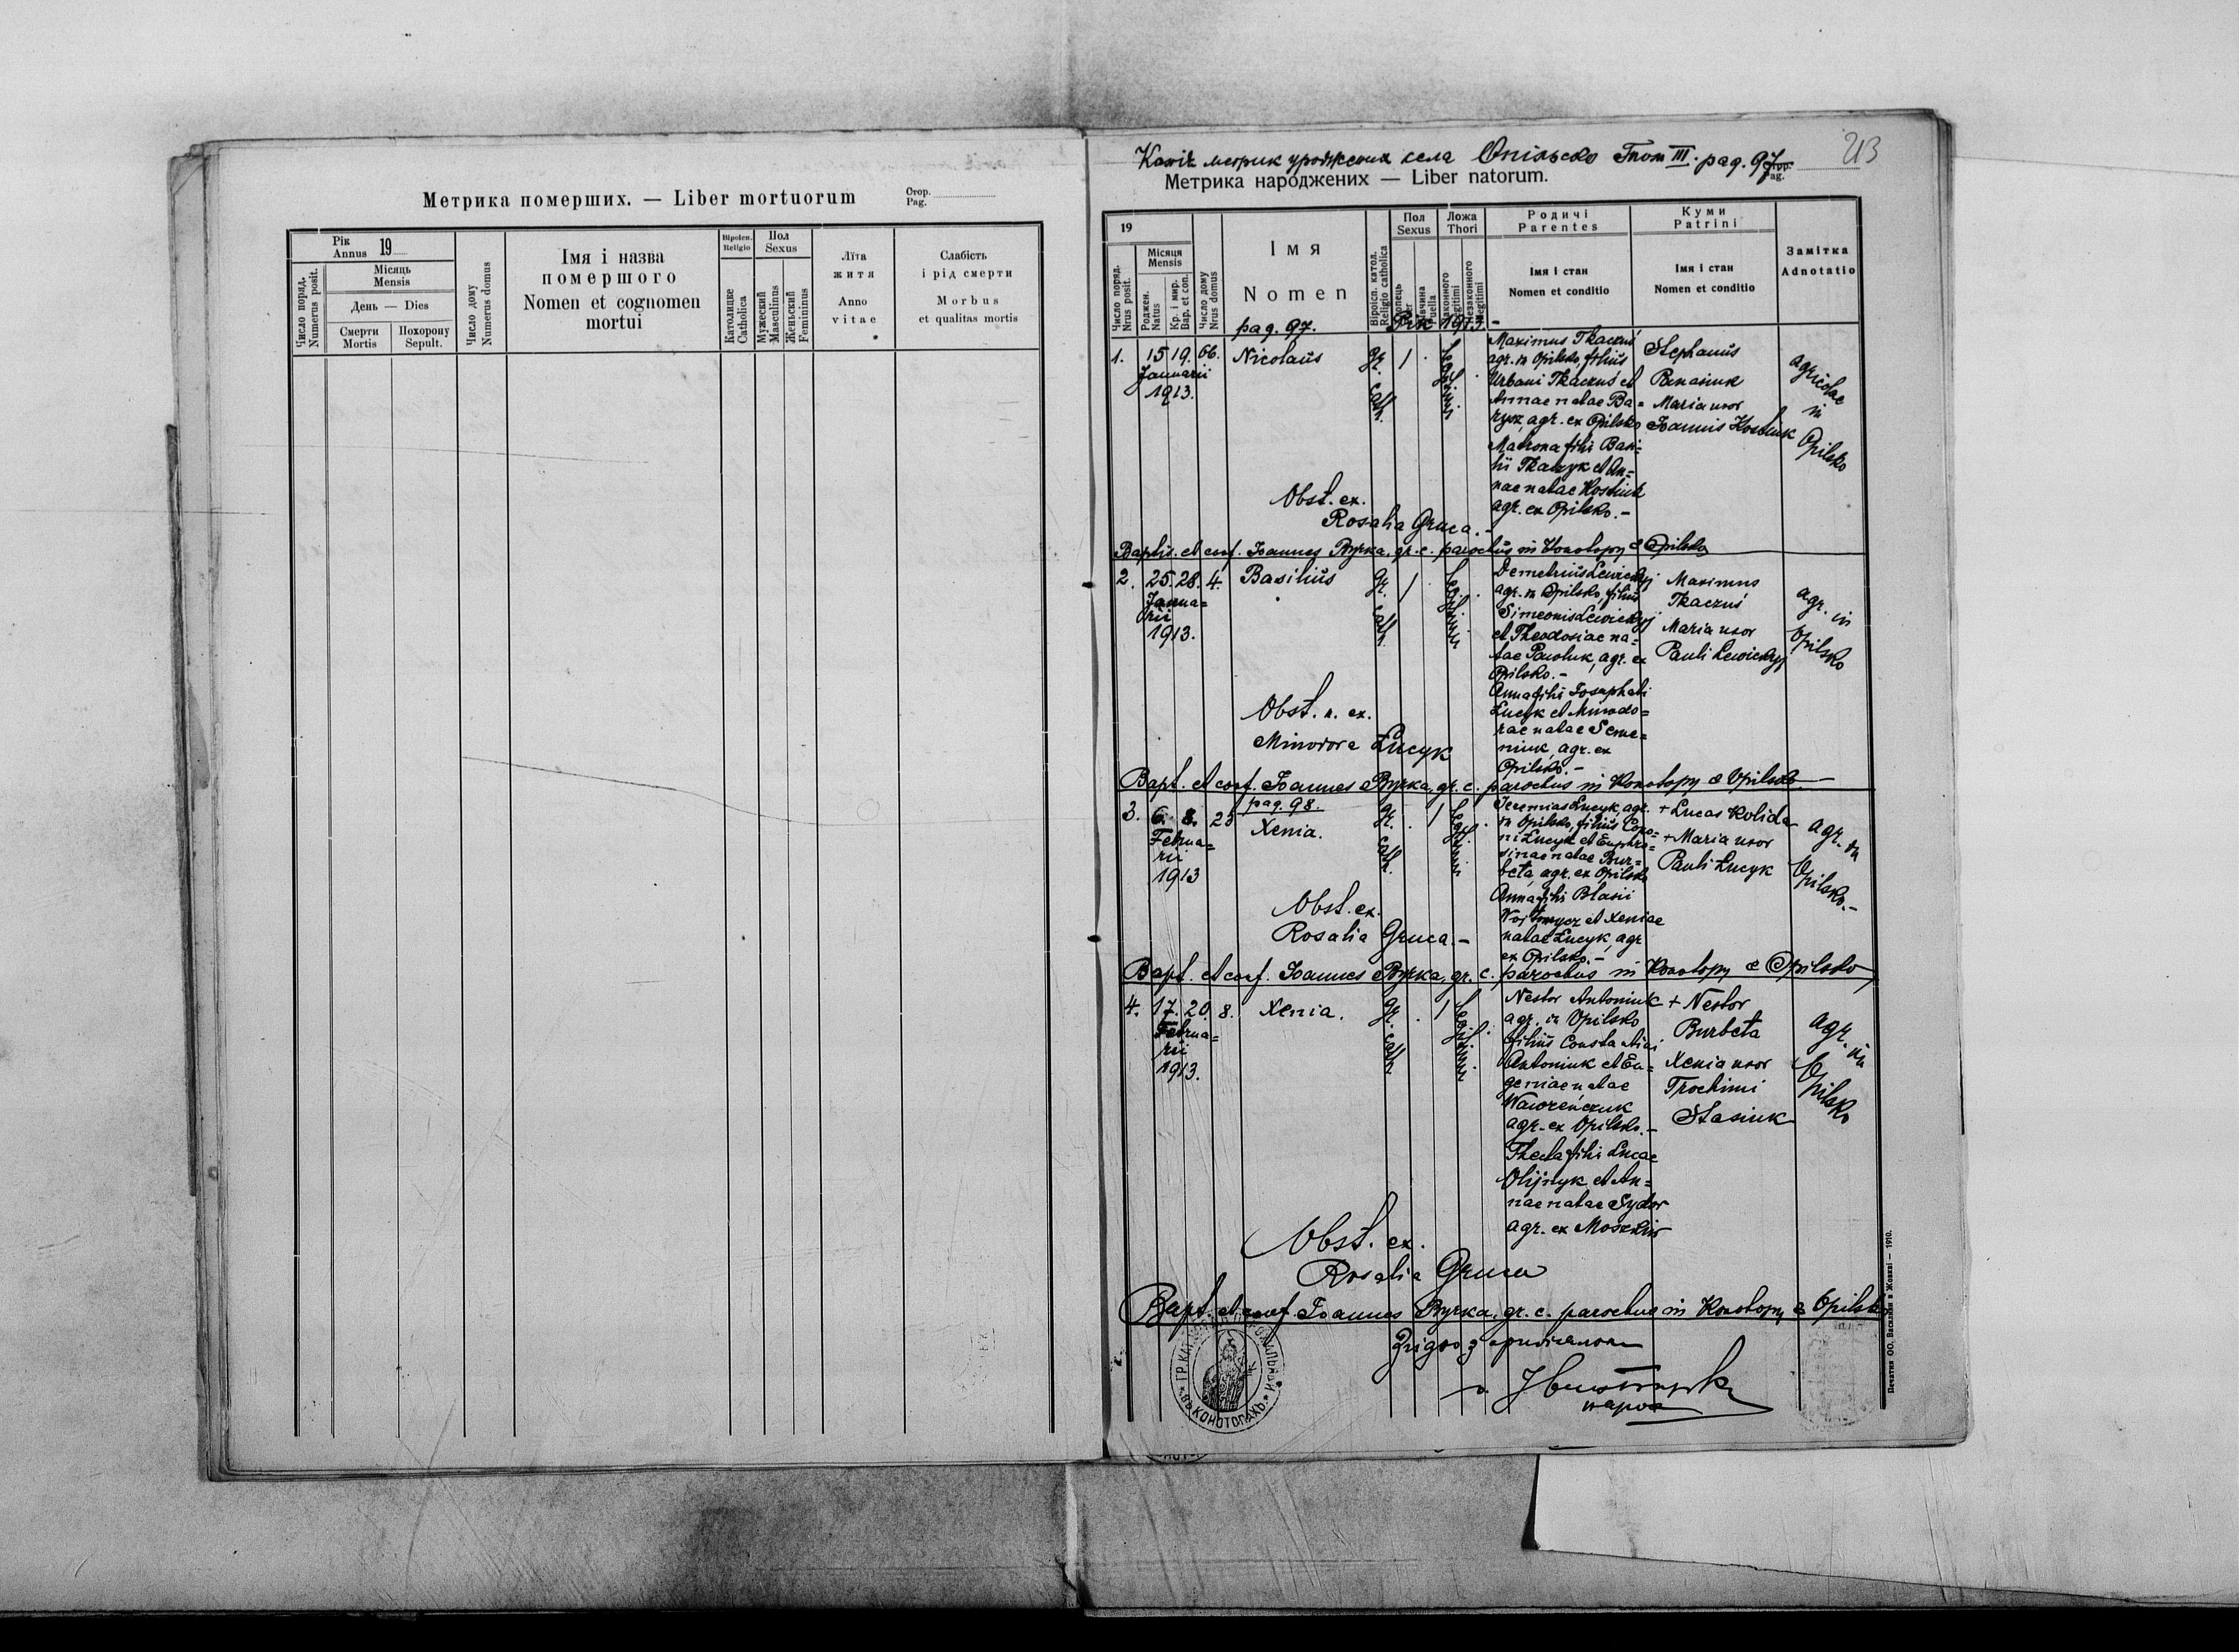 Метрика померших. — Liber mortuorum
Стор.
Pag.
Рік
Annus 19
Число поряд.
Numerus posit.
Місяць
Mensis
День — Dies
Смерти
Mortis
Похорону
Sepult.
Число дому
Numerus domus
Імя і назва
помершого
Nomen et cognomen
mortui
Віроісп.
Religio
Католицке
Catholica
Пол
Sexus
Мужеский
Masculinus
Женьский
Femininus
Літа
житя
Anno
vitae
Слабість
і рід смерти
Morbus
et qualitas mortis
метрик уроджених села Опільско Том III. pag. 97
213
Метрика народжених — Liber natorum.
Стор.
Pag.
19
Число поряд.
Nrus posit.
Місяця
Mensis
Роджен.
Natus
Кр. і мир.
Bap. et con.
Число дому
Nrus domus
Імя
Nomen
Віроісп. катол.
Religio catholica
Пол
Sexus
Хлопець
Puer
Дївчина
Puella
Ложа
Thori
Законного
Legitimi
Незаконного
Illegitimi
Родичі
Parentes
Імя і стан
Nomen et conditio
Куми
Patrini
Імя і стан
Nomen et conditio
Замітка
Adnotatio
pag. 97.
Рік 1913.-
1. 15 19. 66. Nicolaus gr. cath. 1 . Legitimi .
Januarii
1913.
Maximus Tkaczuś
agr. in Opilsko, filius
Urbani Tkaczuś et
Annae natae Ba=
rycz, agr. ex Opilsko
Matrona fili Basi=
lii Tkaczyk et An=
nae natae Kostiuk
agr. ex Opilsko.-
Stephanus
Panasiuk
Maria uxor
Joannis Kostiuk
agricolae
in
Opilsko
Obst. ex.
Rosalia Gruca.-
Baptis. et conf. Joannes Byrka, gr. c. parochus in Konotopy & Opilsko
2. 25. 28. 4. Basilius gr. cath. 1 . Legitimi .
Janua=
rii
1913.
Demetrius Lewickyj
agr. in Opilsko, filius
Simeonis Lewickyj
et Theodosiae na=
tae Pawluk, agr. ex
Opilsko.-
Anna fili Josaphati
Łucyk et Minodo=
rae natae Seme=
niuk, agr. ex
Opilsko.-
Maximus
Tkaczuś
Maria uxor
Pauli Lewickyj
agr. in
Opilsko
Obst. n. ex.
Minodora Łucyk
Bapt. et conf. Joannes Byrka, gr. c. parochus in Konotopy & Opilsko.-
pag. 98.
3. 6. 8. 23 Xenia. gr. cath. . 1 Legitimi .
Februa=
rii
1913
Jeremias Łucyk, agr.
in Opilsko, filius
Łucyk et Euphro=
sinae natae Bur=
beta, agr. ex Opilsko
Anna fili Blasii
et Xeniae
natae Łucyk, agr
ex Opilsko.-
+ Lucas Kolida
+ Maria uxor
Pauli Łucyk
agr. in
Opilsko.-
Obst. ex.
Rosalia Gruca.-
Bapt. et conf. Joannes Byrka, gr. c. parochus in Konotopy & Opilsko
4. 17. 20. 8. Xenia. gr. cath. . 1 Legitimi .
Februa=
rii
1913.
Nestor Antoniuk
agr. in Opilsko
filius Constantini
Antoniuk et Eu=
geniae natae
Wawreńczuk
agr. ex Opilsko.-
Thecla fili Lucae
Olijnyk et An=
nae natae Sydor
agr. ex Moszków
+ Nestor
Burbeta
Xenia uxor
Trochimi
Stasiuk
agr. in
Opilsko
Obst. ex.
Rosalia Gruca
Bapt. et conf. Joannes Byrka, gr. c. parochus in Konotopy & Opilsko
Згідно з оригіналом
парох
ГР. КАТ.
ВЪ КОНОТОПАХЪ
Печатня ОО. Василиян в Жовкві — 1910.